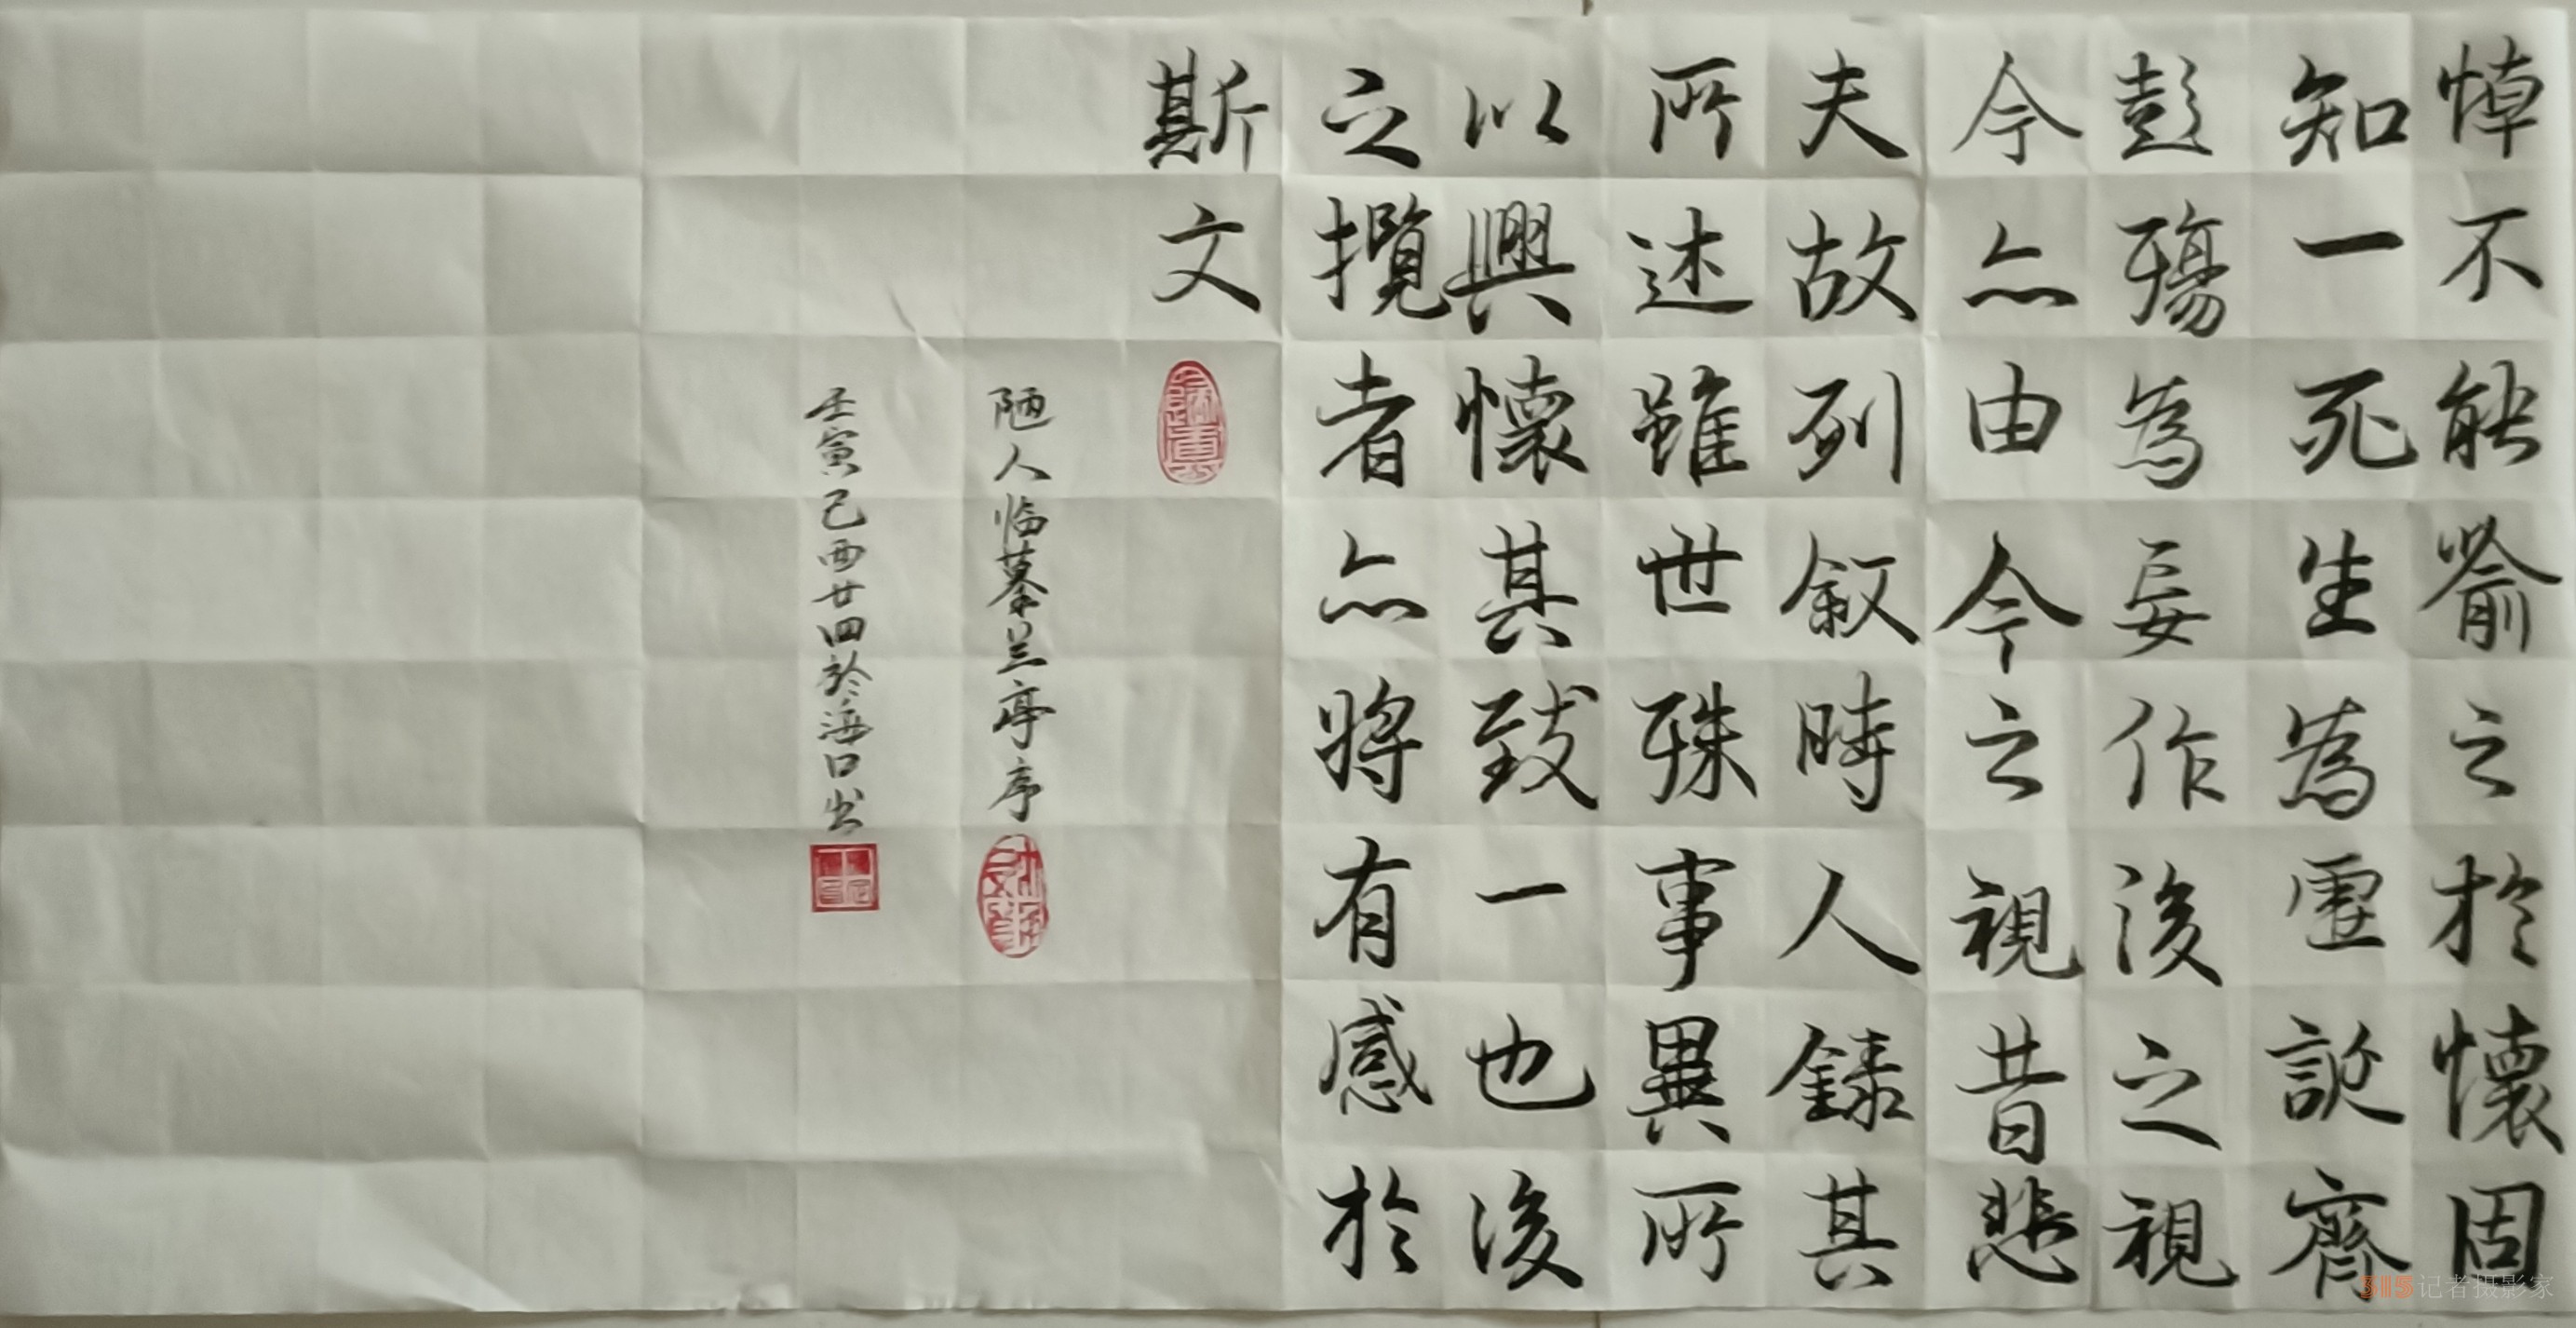 悼不能喻之於懷固
知一死生為虛誕齊
彭殤為妄作後之視
今亦由今之視昔悲
夫故列敘時人錄其
所述雖世殊事異所
以興懷其致一也後
之攬者亦將有感於
斯文
陋人临摹兰亭序
壬寅己酉廿四於海口出
315记者摄影家